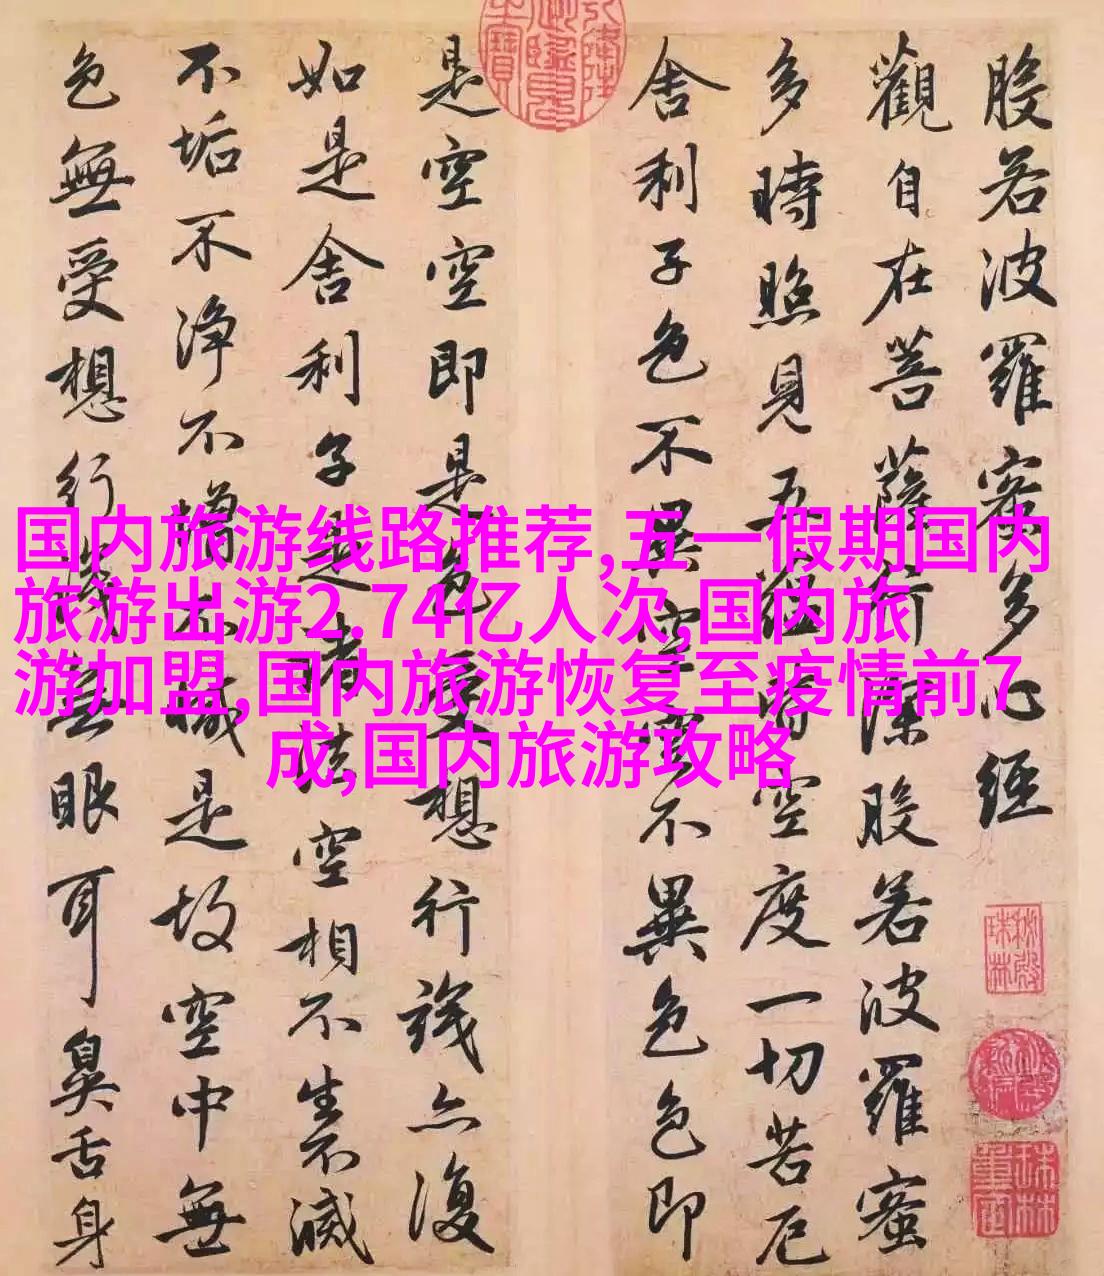 般若波羅蜜多心經
觀自在菩薩行深般若波羅蜜
多時照見五蘊皆空度一切苦厄
舍利子色不異空空不異色色即
是空空即是色受想行識亦復
如是舍利子是諸法空相不生不滅
不垢不淨不增不減是故空中無
色無受想行識無眼耳鼻舌身
国内旅游线路推荐,五一假期国内
旅游出游2.74亿人次,国内旅
游加盟,国内旅游恢复至疫情前7
成,国内旅游攻略